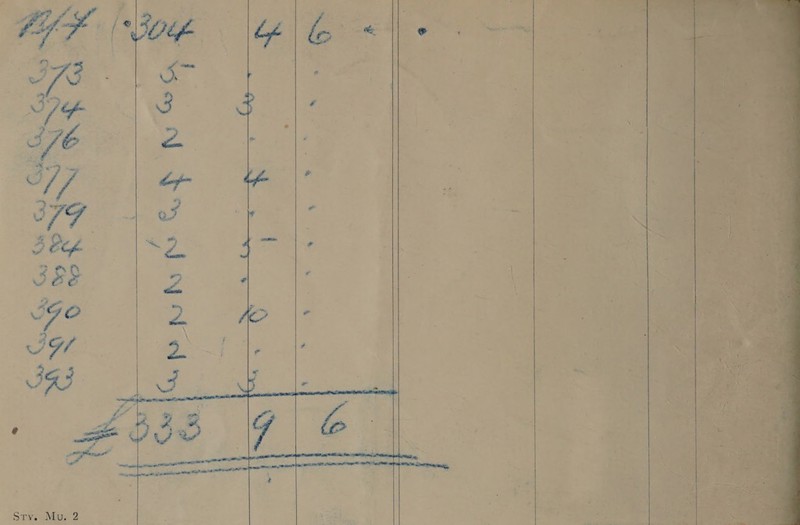 B/F 304 4 6
373 5 . .
374 3 3 .
376 2 . .
377 4 4 .
379 3 . .
384 2 5 .
388 2 . .
390 2 10 .
391 2 . .
393 3 3 .
£ 333 9 6
STY. MU. 2